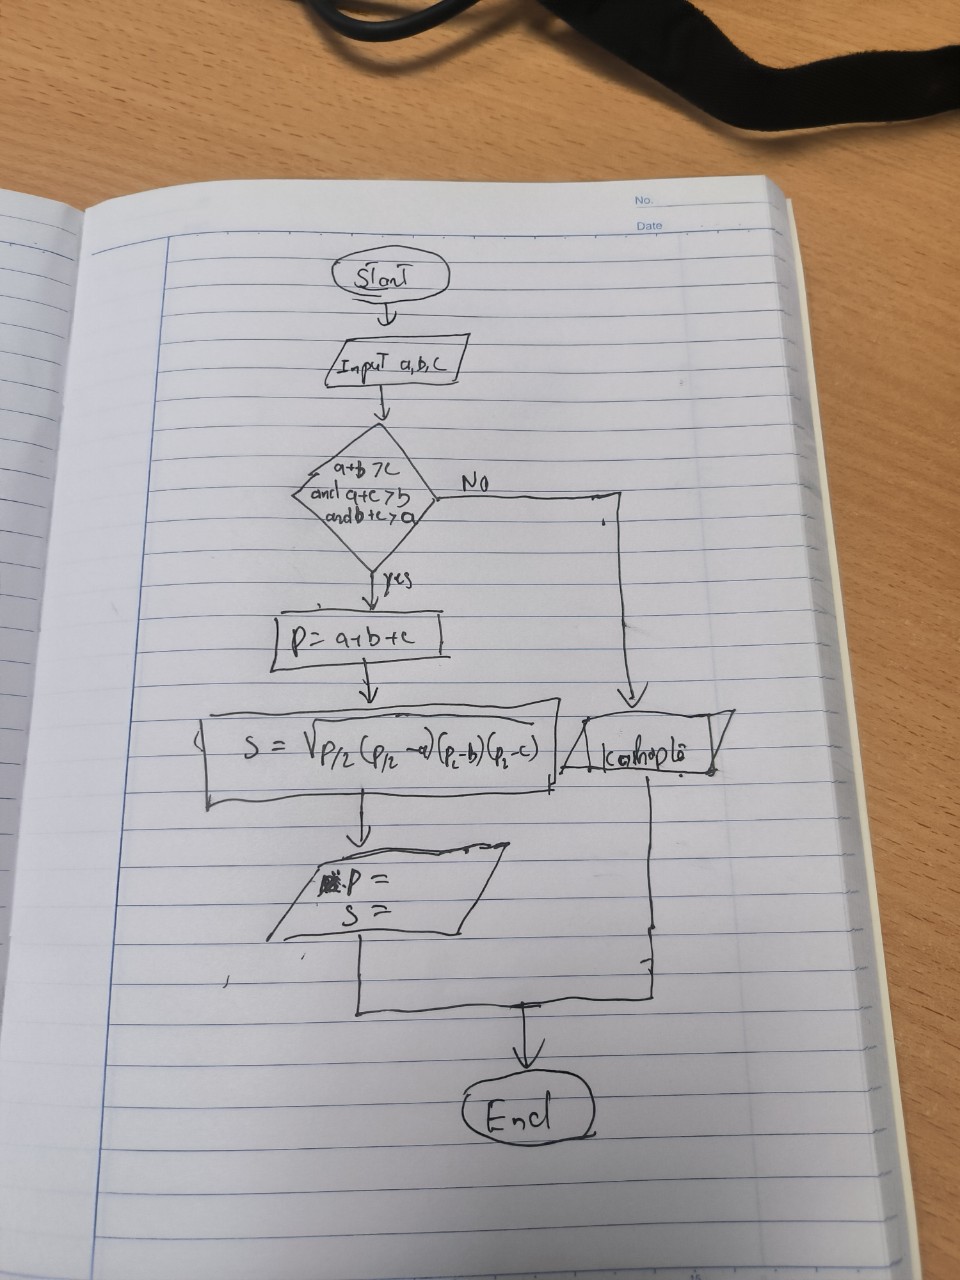 No.
Date
Start
Input a,b,c
a+b >c
and a+c >b
and b+c >a
No
yes
P= a+b+c
S = √P/2 (P/2 -a)(P/2-b)(P/2-c)
P =
S =
End